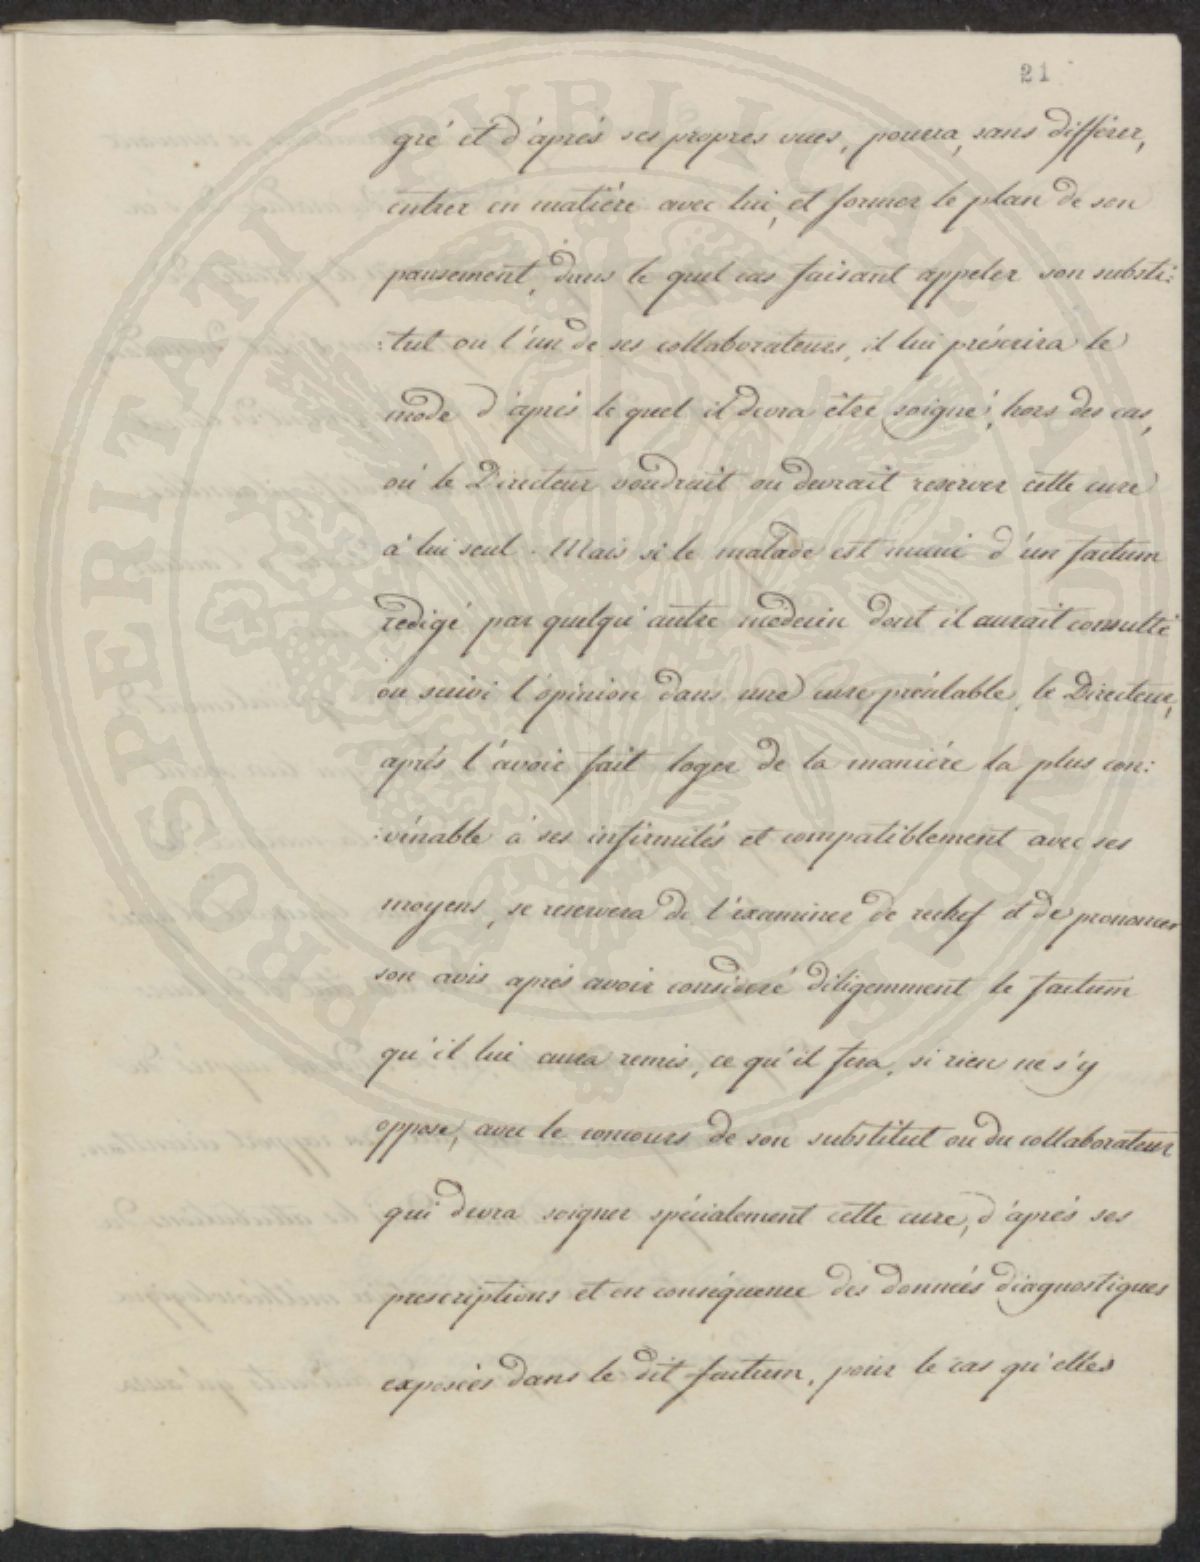 21
gré et d'áprés ses propres vues, pourra, sans différer,
entrer en matiére avec lui, et former le plan de son
pansement, dans le quel cas faisant appeler son substi:
:tut ou l'un de ses collaborateurs, il lui préscrira le
mode d'áprés le quel il devra être soigné, hors des cas,
oú le Directeur voudrait ou devrait reserver cette cure
á lui seul. Mais si le malade est muni d'un factum
redigé par quelqu'autre medecin dont il aurait consulté
ou suivi l'ópinion dans une cure préalable, le Directeur,
aprés l'ávoir fait loger de la maniére la plus con:
:vénable á ses infirmités et compatiblement avec ses
moyens, se reservera de l'éxaminer de rechef et de prononcer
son avis aprés avoir consideré diligemment le factum
qu'il lui aura remis, ce qu'il fera, si rien ne s'y
oppose, avec le concours de son substitut ou du collaborateur
qui devra soigner spécialement cette cure, d'áprés ses
prescriptions et en conséquence des données diagnostiques
exposées dans le dit factum, pour le cas qu'elles
PROSPERITATI PVBLICAE